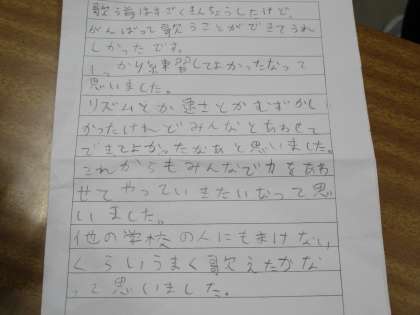 歌う前はすごくきんちょうしたけど、
がんばって歌うことができてうれ
しかったです。
しっかり練習してよかったなって
思いました。
リズムとか速さとかむずかし
かったけれどみんなとあわせて
できてよかったなあと思いました。
これからもみんなで力をあわ
せてやっていきたいなって思
いました。
他の学校の人にもまけない
くらいうまく歌えたかな
って思いました。